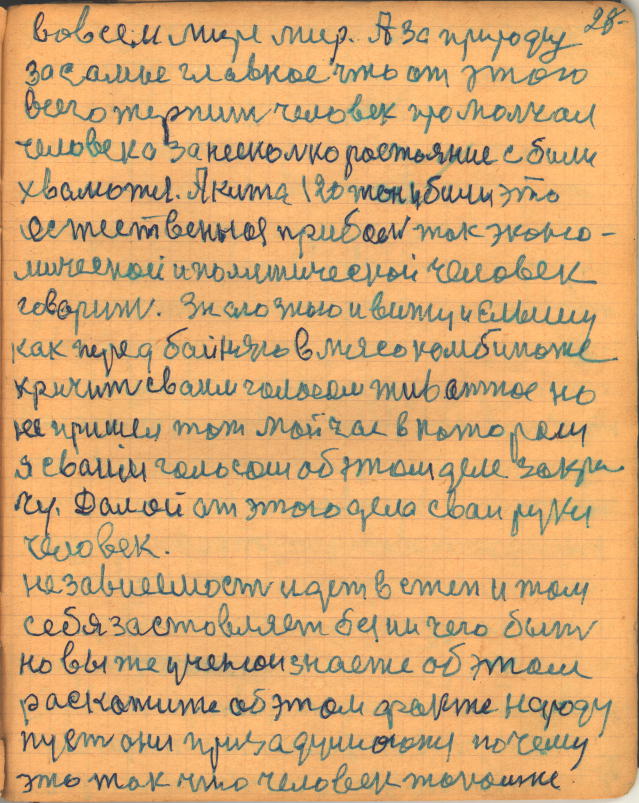 28-
вовсем мире мир. А за природу
за самые главное что от этого
всего терпит человек промолчал
человека занесколко ростояние с были
хвамоты. А кита 120 тон убили это
естественыя прибой так эконо-
мической и политической человек
говорит. Зналознаю и вижу и слышу
как перед байняго в мясокомбинате
кричит сваим голосом животное но
не пришел тот мой час в котором
я сваим голосом об этом деле закри
чу. Далой от этого дела сваи руки
человек.
независемост идет в степ и там
себя заставляет без ни чего быт
но вы же ученои знаете об этом
раскожите об этом факте народу
пуст они призадумоюту почему
это так что человек тонаши